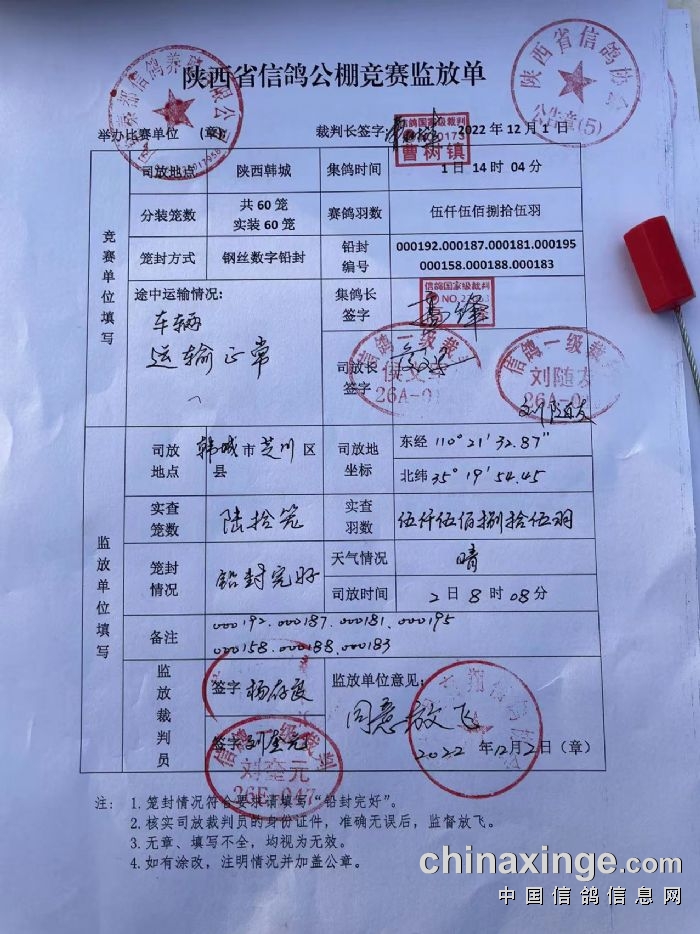 陕西省信鸽公棚竞赛监放单
陕西省信鸽协会
公告章(5)
举办比赛单位 (章)
裁判长签字
信鸽国家级裁判
曹树镇
2022 年 12 月 1 日
竞赛单位填写
司放地点 陕西韩城 集鸽时间 1 日 14 时 04 分
分装笼数 共 60 笼 实装 60 笼 赛鸽羽数 伍仟伍佰捌拾伍羽
笼封方式 钢丝数字铅封 铅封编号 000192.000187.000181.000195
000158.000188.000183
途中运输情况:
车辆
运输正常
集鸽长签字
信鸽国家级裁判
司放长签字
信鸽一级裁
26A-0
信鸽一级裁
刘随友
26A-0
刘随友
监放单位填写
司放地点 韩城 市 芝川 区县 司放地坐标 东经 110° 21' 32.87"
北纬 35° 19' 54.45
实查笼数 陆拾笼 实查羽数 伍仟伍佰捌拾伍羽
笼封情况 铅封完好 天气情况 晴
司放时间 2 日 8 时 08 分
备注 000192.000187.000181.000195
000158.000188.000183
监放裁判员
签字 杨存良
签字 刘奎元
信鸽一级裁判
刘奎元
26E-047
监放单位意见:
同意放飞
2022 年 12 月 2 日 (章)
注: 1.笼封情况符合要求请填写“铅封完好”。
2.核实司放裁判员的身份证件, 准确无误后, 监督放飞。
3.无章、填写不全, 均视为无效。
4.如有涂改, 注明情况并加盖公章。
chinaxinge.com
中国信鸽信息网